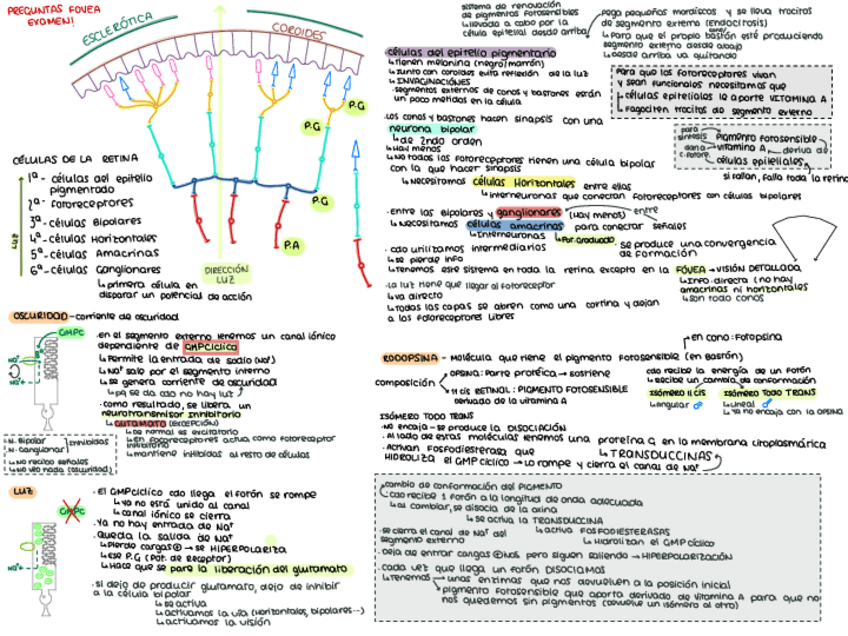 PREGUNTAS FOVEA
EXAMEN!
ESCLERÓTICA
COROIDES
P.G
P.G
P.A
CÉLULAS DE LA RETINA
LUZ
1ª - células del epitelio
pigmentado
2ª - Fotoreceptores
3ª - células Bipolares
4ª - células Horizontales
5ª - células Amacrinas
6ª - células Ganglionares
↳ primera célula en
disparar un potencial de acción
DIRECCIÓN
LUZ
OSCURIDAD - corriente de oscuridad
GMPC
Na+
Na+
· en el segmento externo tenemos un canal iónico
dependiente de GMPcíclico
↳ Permite la entrada de sodio (Na+)
↳ Na+ sale por el segmento interno
↳ se genera corriente de oscuridad
↳ pq se da cdo no hay luz
· como resultado, se libera un
neurotransmisor inhibitorio
↳ GLUTAMATO (EXCEPCIÓN)
↳ de normal es excitatorio
↳ en fotoreceptores actua como fotoreceptor
inhibitorio
↳ mantiene inhibidas al resto de células
N. Bipolar
N. Ganglionar
Inhibidas
↳ No recibo señales
↳ No veo nada (oscuridad)
LUZ
GMPC
Na+
· El GMPcíclico cdo llega el fotón se rompe
↳ ya no está unido al canal
↳ canal iónico se cierra
· Ya no hay entrada de Na+
· Queda la salida de Na+
↳ Pierde cargas ⊕ → se HIPERPOLARIZA
↳ ese P.G (Pot. de Receptor)
↳ Hace que se pare la liberación del glutamato
· si dejo de producir glutamato, dejo de inhibir
a la célula bipolar
↳ se activa
↳ activamos la vía (Horizontales, bipolares...)
↳ activamos la visión
sistema de renovación
de pigmentos fotosensibles
↳ llevada a cabo por la
célula epitelial desde arriba
pega pequeños mordiscos y se lleva trocitos
de segmento externo (endocitosis)
↳ Para que el propio bastón esté produciendo
segmento externo desde abajo
↳ desde arriba va quitando
células del epitelio pigmentario
↳ tienen melanina (negro/marrón)
↳ Junto con coroides evita reflexión de la luz
↳ INVAGINACIÓNES
· segmentos externos de conos y bastones están
un poco metidos en la célula
Para que los fotoreceptores vivan
y sean funcionales necesitamos que
↳ células epiteliales le aporte VITAMINA A
↳ Fagociten trocitos de segmento externo
· Los conos y bastones hacen sinapsis con una
neurona bipolar
↳ de 2ndo orden
↳ Hay menos
↳ No todos los fotoreceptores tienen una célula bipolas
con la que hacer sinapsis
↳ Necesitamos células Horizontales entre ellas
↳ interneuronas que conectan fotoreceptores con células bipolares
para
síntesis
Pigmento Fotosensible
dana vitamina A deriva de
c. fotore.
células epiteliales
si fallan, falla toda la retina
· Entre las Bipolares y ganglionares (Hay menos) entre
↳ Necesitamos células amacrinas para conectar señales
↳ Interneuronas
↳ Por graduado
· cdo utilizamos intermediarios
↳ se pierde info
↳ Tenemos este sistema en toda la retina excepto en la FÓVEA → VISIÓN DETALLADA
· se produce una convergencia
de formación
↳ Info. directa (no hay
amacrinas ni horizontales
↳ son todo conos
· La luz tiene que llegar al fotoreceptor
↳ va directo
↳ todas las capas se abren como una cortina y dejan
a los fotoreceptores libres
en cono: Fotopsina
RODOPSINA - Molécula que tiene el pigmento Fotosensible (en Bastón)
composición
OPSINA: Parte protéica → sostiene
11 cis RETINOL: PIGMENTO FOTOSENSIBLE
derivado de la vitamina A
cdo recibe la energía de un Fotón
↳ Recibe un cambio de conformación
ISÓMERO 11 cis
↳ Angular
ISÓMERO TODO TRANS
↳ Lineal
↳ Ya no encaja con la OPSINA
ISÓMERO TODO TRANS
· No encaja - se produce la DISOCIACIÓN
· Al lado de estas moléculas tenemos una proteína G en la membrana citoplasmática
· Activan Fosfodiesterasa que ↳ TRANSDUCCINAS
HIDROLIZA el GMP cíclico → Lo rompe y cierra el canas de Na+
cambio de conformación del PIGMENTO
↳ cdo recibe 1 Fotón a la longitud de onda adecuada
↳ al cambiar, se disocia de la
↳ se activa la TRANSDUCCINA
↳ activa FOSFODIESTERASAS
↳ Hidrolizan el GMP cíclico
· se cierra el canal de Na+ del
segmento externo
· Deja de entrar cargas ⊕ivas pero siguen saliendo → HIPERPOLARIZACIÓN
· cada vez que llega un fotón DISOCIAMOS
↳ Tenemos → unas enzimas que nos devuelven a la posición inicial
pigmento fotosensible que aporta derivado de vitamina A para que no
nos quedemos sin pigmentos (devuelve un isómero al otro)